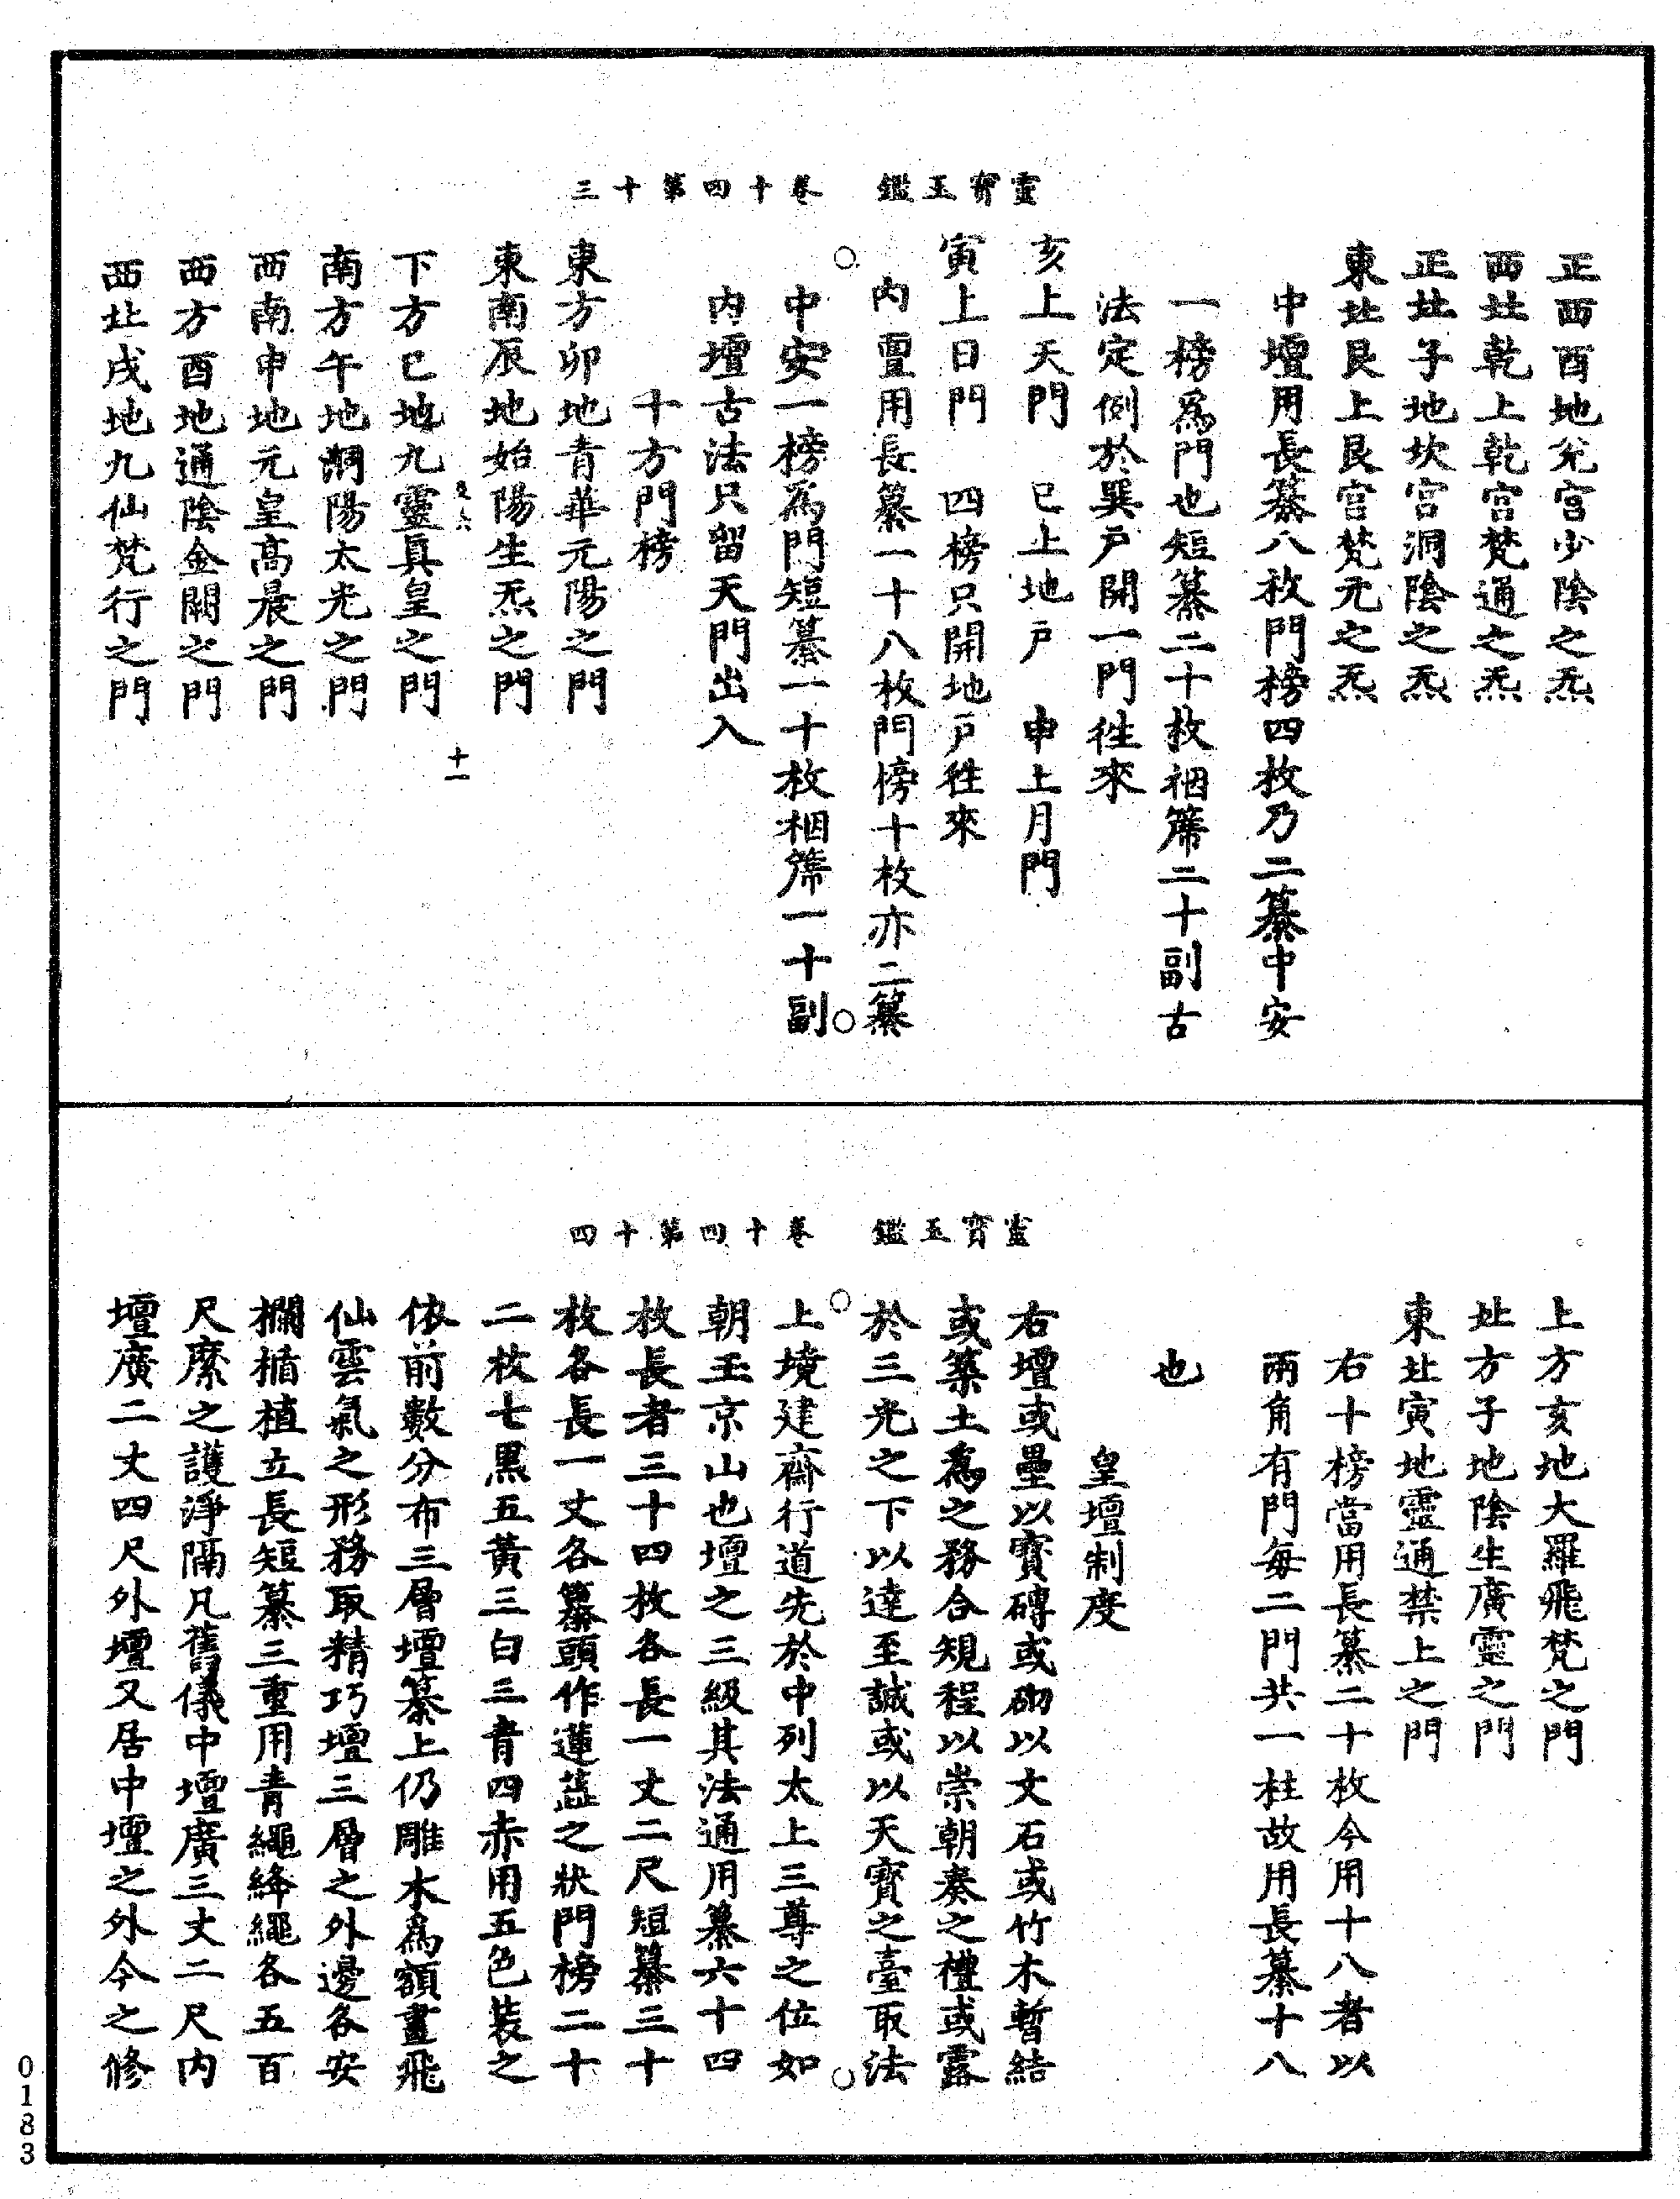 靈寶玉鑑　卷十四第十三
正西酉地兌宮少陰之炁
西北乾上乾宮梵通之炁
正北子地坎宮洞陰之炁
東北艮上艮宮梵元之炁
中壇用長纂八枚門榜四枚乃二纂中安
一榜爲門也短纂二十枚裀簾二十副古
法定例於巽戶開一門徃來
亥上天門　巳上地戶　申上月門
寅上日門　四榜只開地戶徃來
內壇用長纂一十八枚門榜十枚亦二纂
中安一榜爲門短纂一十枚裀簾一十副
內壇古法只留天門出入
十方門榜
東方卯地青華元陽之門
東南辰地始陽生炁之門
十一
下方巳地九靈眞皇之門
南方午地洞陽太光之門
西南申地元皇高晨之門
西方酉地通陰金闕之門
西北戌地九仙梵行之門
靈寶玉鑑　卷十四第十四
上方亥地大羅飛梵之門
北方子地陰生廣靈之門
東北寅地靈通禁上之門
右十榜當用長纂二十枚今用十八者以
兩角有門每二門共一柱故用長纂十八
也
皇壇制度
右壇或壘以寶磚或砌以文石或竹木暫結
或築土爲之務合規程以崇朝奏之禮或露
於三光之下以達至誠或以天寶之臺取法
上境建齋行道先於中列太上三尊之位如
朝玉京山也壇之三級其法通用纂六十四
枚長者三十四枚各長一丈二尺短纂三十
枚各長一丈各纂頭作蓮蕋之狀門榜二十
二枚七黑五黃三白三青四赤用五色裝之
依前數分布三層壇纂上仍雕木爲額畫飛
仙雲氣之形務取精巧壇三層之外邊各安
欄楯植立長短纂三重用青繩絳繩各五百
尺縻之護淨隔凡舊儀中壇廣三丈二尺內
壇廣二丈四尺外壇又居中壇之外今之修
0183